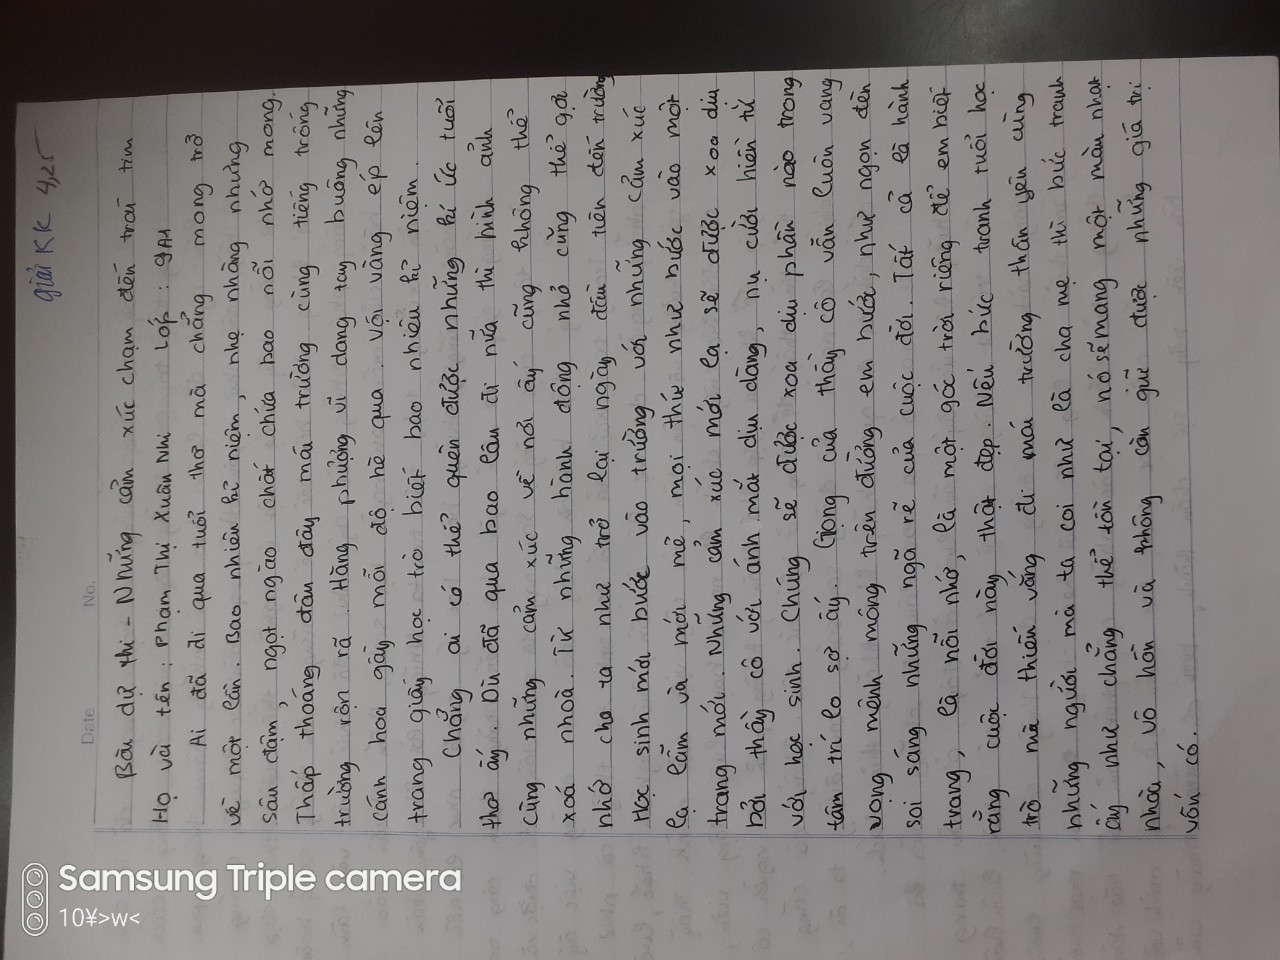 giải KK 4,25
Date No.
Bài dự thi - Những cảm xúc chạm đến trái tim
Họ và tên: Phạm Thị Xuân Nhi Lớp: 9A1
Ai đã đi qua tuổi thơ mà chẳng mong trở
về một lần. Bao nhiên kỉ niệm, nhẹ nhàng nhưng
sâu đậm, ngọt ngào chất chứa bao nỗi nhớ mong.
Thấp thoáng đâu đây mái trường cùng tiếng trống
trường rộn rã. Hàng phượng vĩ dang tay buông những
cánh hoa gầy mỗi độ hè qua. Vội vàng ép lên
trang giấy học trò biết bao nhiêu kỉ niệm.
Chẳng ai có thể quên được những kí ức tuổi
thơ ấy. Dù đã qua bao lâu đi nữa thì hình ảnh
cùng những cảm xúc về nơi ấy cũng không thể
xoá nhoà. Từ những hành động nhỏ cũng thể gợi
nhớ cho ta như trở lại ngày đầu tiên đến trường
Học sinh mới bước vào trường với những cảm xúc
lạ lẫm và mới mẻ, mọi thứ như bước vào một
trang mới. Những cảm xúc mới lạ sẽ được xoa dịu
bởi thầy cô với ánh mắt dịu dàng, nụ cười hiền từ
với học sinh. Chúng sẽ được xoa dịu phần nào trong
tâm trí lo sợ ấy. Giọng của thầy cô vẫn luôn vang
vọng mênh mông trên đường em bước, như ngọn đèn
soi sáng những ngã rẽ của cuộc đời. Tất cả là hành
trang, là nỗi nhớ, là một góc trời riêng để em biết
rằng cuộc đời này thật đẹp. Nếu bức tranh tuổi học
trò mà thiếu vắng đi mái trường thân yên cùng
những người mà ta coi như là cha mẹ thì bức tranh
ấy như chẳng thể tồn tại, nó sẽ mang một màn nhạt
nhoà, vô hồn và không còn giữ được những giá trị
vốn có.
Samsung Triple camera
10¥>w<